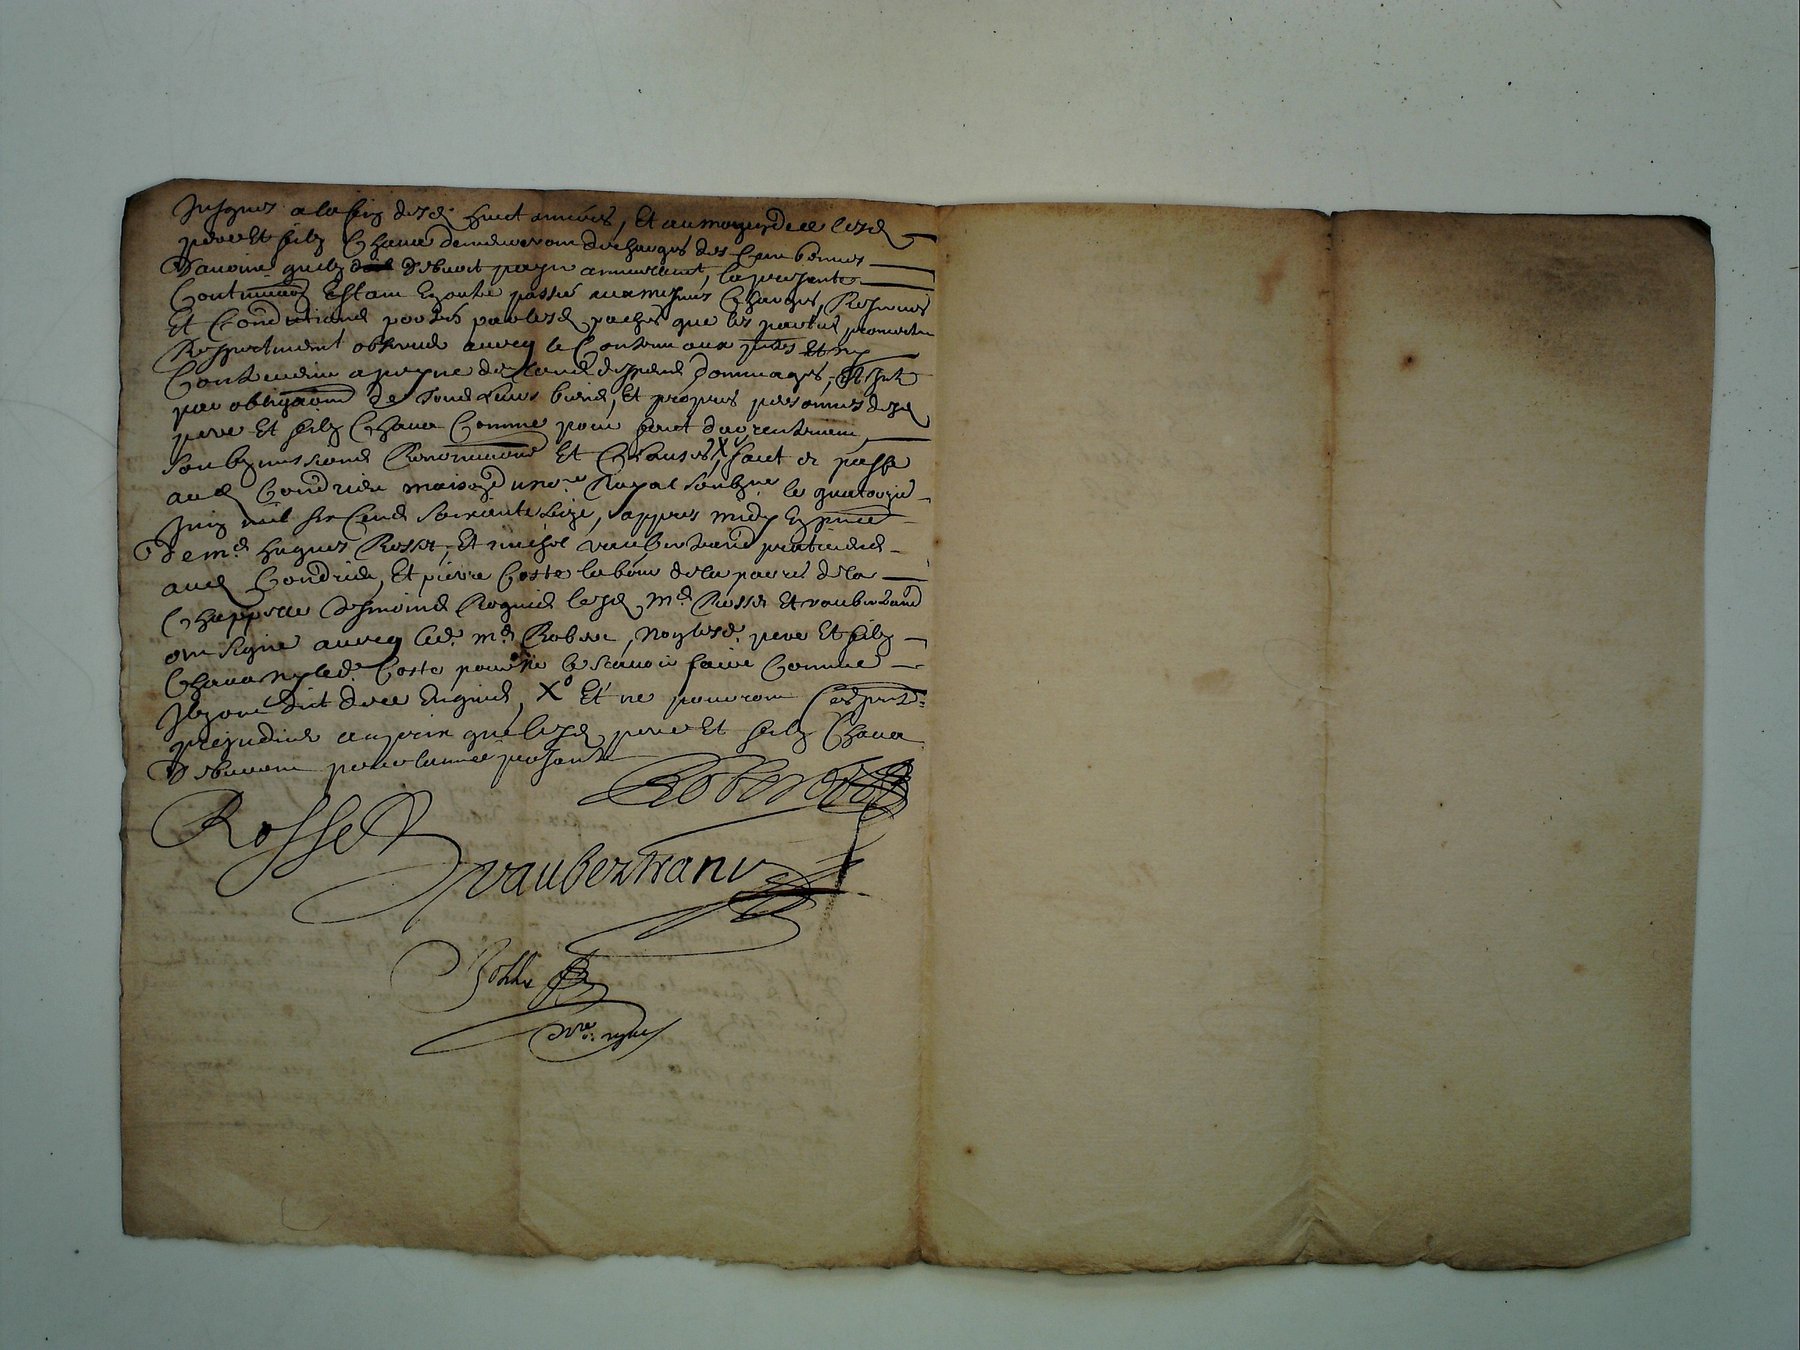 Jusques a la fin desd. huict années, Et au moyen de ce lesd.
pere Et filz Chava demeureront deschargés des cens bennes
D'avoine quilz debvoit payer annuellemt, la presente
Continuaon Estant En outre passée aux mesmes Charges, Reserves
Et Conditions portés par lesd. paches que les parties promettent
Respectivement observer avecq le Contenu aux pntes Et ny
Contrevenir a peyne de tous despens dommages, Et
par obligaons de tous leurs biens, Et propres personnes desd.
pere Et filz Chava Comme pour faict
Soubzmissions Renonciaons Et Clauses, faict et passé
aud. Condrieu maison du nore Royal Soubzne le quatorzie
Juin mil six Cens Soixante Seize, appres midy En pnce
De me hugues Rosset, Et michel vaubertrand praticiens
aud. Condrieu, Et pierre Coste labour de la parre de la
Chappelle lesd. me Rosset Et vaubertrand
ont signé avecq led. me Robert, non lesd. pere Et filz
Chava ny led. Coste pour ne le scavoir faire Comme
Ilz ont dit de ce Enquis, Xo Et ne pourront Ces pntes
prejudicier au prix que lesd. pere Et filz Chava
Debvront pour lannée presente
Robert
Rosset
vaubertrand
nore royal